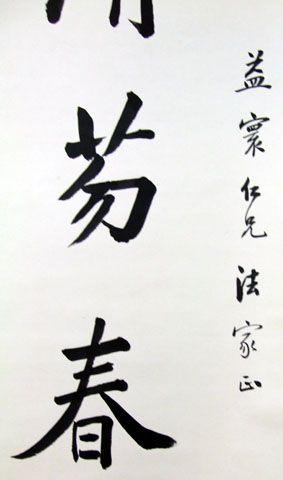 益寰仁兄法家正
芴春